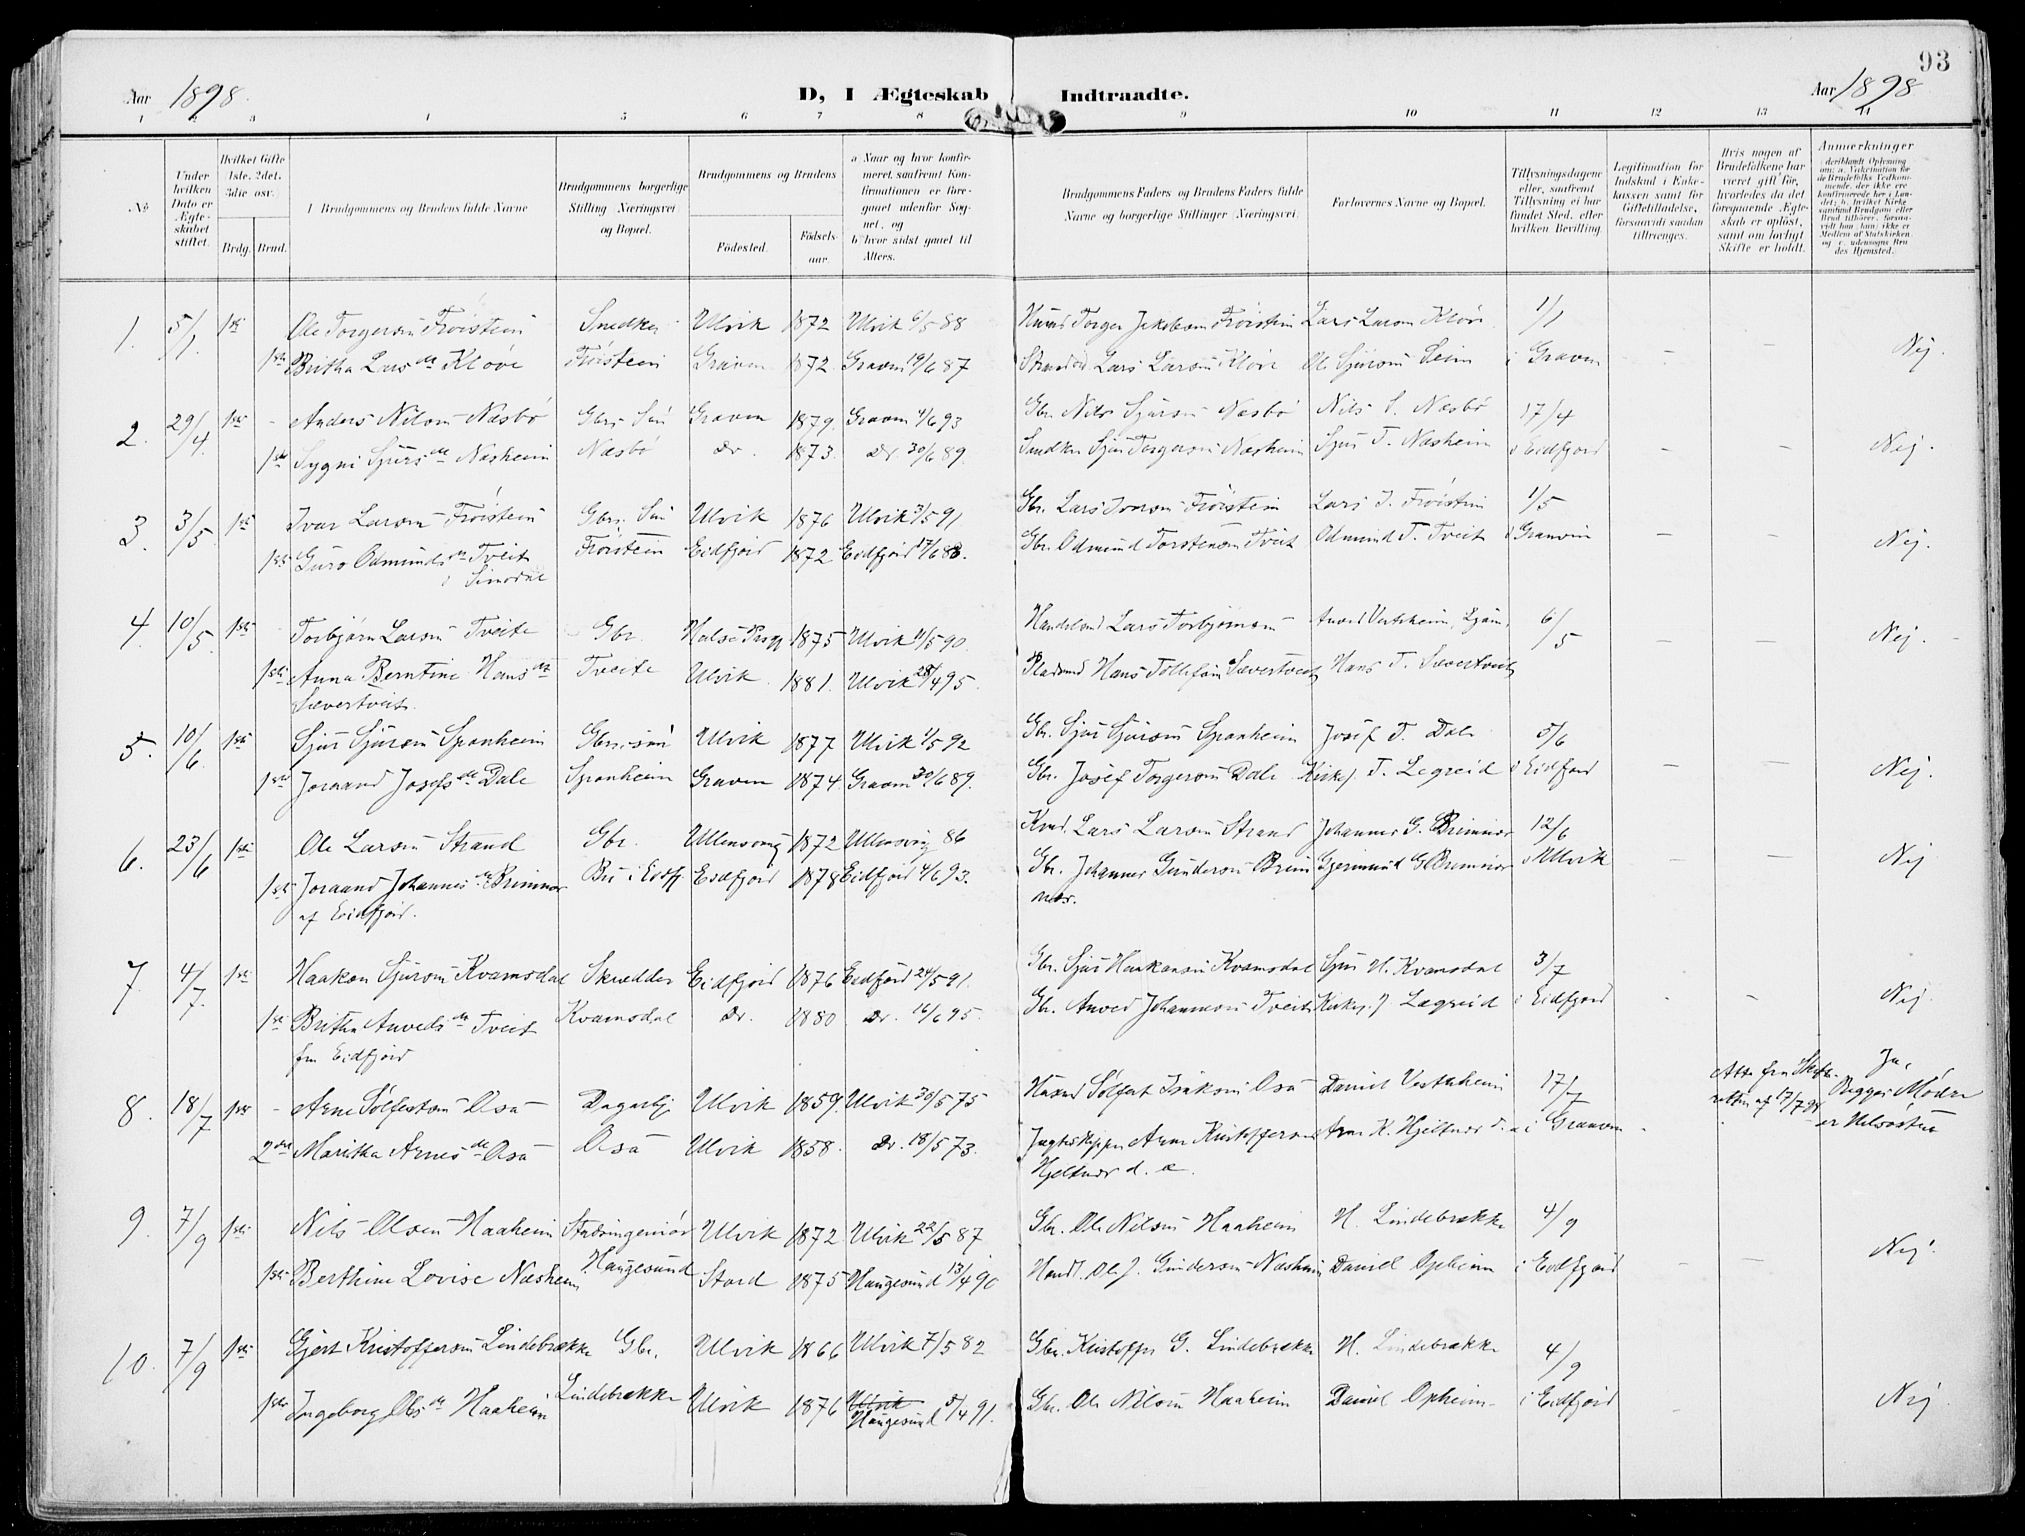 93
Aar 1898.
D, I Ægteskab Indtraadte.
Aar 1898
1 2 3 4 5 6 7 8 9 10 11 12 13 14
No.
Under hvilken Dato er Ægteskabet stiftet.
Hvilket Gifte 1ste. 2det. 3die osv.
Brdg. Brud.
Brudgommens og Brudens fulde Navne
Brudgommens borgerlige Stilling Næringsvei og Bopæl.
Brudgommens og Brudens
Fødested.
Fødselsaar.
a Naar og hvor konfirmeret, saafremt Konfirmationen er foregaaet udenfor Sognet, og
b hvor sidst gaaet til Alters.
Brudgommens Faders og Brudens Faders fulde Navne og borgerlige Stillinger (Næringsvei).
Forlovernes Navne og Bopæl.
Tillysningsdagene eller, saafremt Tillysning ei har fundet Sted, efter hvilken Bevilling.
Legitimation for Indskud i Enkekassen samt for Giftetilladelse, forsaavidt saadan tiltrænges.
Hvis nogen af Brudefolkene har været gift før, hvorledes da det foregaaende Ægteskab er opløst, samt om lovligt Skifte er holdt.
Anmærkninger
1. 5/1. 1ste Ole Torgersøn Fröistein Snedker Ulvik 1872 Ulvik 6/5 88 Husmd Torger Jakobsøn Fröistein Lars Larsøn Klöve 1/1
1ste Britha Larsdr Klöve Fröistein Graven 1872. Graven 19/6 87 Strandsd. Lars Larsøn Klöve Ole Sjursøn Seim i Graven - - Nej.
2. 29/4. 1ste - Anders Nilsøn Næsbö Gbrs. Sön Graven 1879. Graven 4/6 93 Gbr. Nils Sjursøn Næsbö Nils S. Næsbö 17/4
1ste Sygni Sjursdr Næsheim Næsbö Do. 1873. Do. 30/6 89. Snedker Sjur Torgersøn Næsheim Sjur T. Næsheim i Eidfjord - - Nej.
3. 3/5 1ste Ivar Larsøn Fröistein Gbrs. Sön Ulvik 1876 Ulvik 3/5 91 Gbr. Lars Ivarsøn Fröistein Lars I. Fröistein 1/5
1ste Guro Odmundsdr Tveit Fröistein Eidfjord 1872 Eidfjord 17/6 88. Gbr. Odmund Torstensøn Tveit Odmund T. Tveit i Granvin - - Nej.
i Simodal
4. 10/5. 1ste Torbjörn Larsøn Tveite Gbr. Halse Prgj 1875 Ulvik 11/5 90. Handelsmd Lars Torbjörnsøn Anved Vestrheim, 6/5
1ste Anna Berntine Hansdr Tveite Ulvik 1881. Ulvik 28/4 95. Pladsmd Hans Tollefsøn Sævertveit Hans T. Sævertveit - - Nej. -
Sævertveit.
5. 10/6. 1ste Sjur Sjursøn Spanheim Gbrs. sön Ulvik 1877 Ulvik 1/5 92 Gbr. Sjur Sjursøn Spanheim Josef T. Dale 5/6
1ste Joraand Josefsdr Dale Spanheim Graven 1874. Graven 30/6 89. Gbr. Josef Torgersøn Dale Kirkesj. T. Legreid i Eidfjord - - Nej.
6. 23/6 1ste Ole Larsøn Strand Gbr. Ullensvang 1872 Ullensvang 86 Lars Larsøn Strand Johannes G. Brimnæs 12/6
1ste Joraand Johannesdr Brimnæs Bu i Eidfj. Eidfjord 1878 Eidfjord 4/6 93. Gbr. Johannes Gundersøn Brimnæs. Gjermund G. Brimnæs i Ulvik - - Nej
af Eidfjord.
7. 4/7. 1ste Haakon Sjursøn Kvamsdal Skrædder Eidfjord 1876 Eidfjord 24/5 91. Gbr. Sjur Haakonsøn Kvamsdal Sjur H. Kvamsdal 3/7
1ste Britha Anvedsdr Tveit Kvamsdal Do. 1880 Do. 16/6 95. Gbr. Anved Johannesøn Tveit Kirkesj. J. Lægreid i Eidfjord - - Nej.
fra Eidfjord
8. 18/7 1ste - Arne Sölfestsøn Osa Dagarb. Ulvik 1859. Ulvik 30/5 75 Husmd Sölfest Isaksøn Osa Daniel Vestrheim 17/7 Atte. fra Skifteretten af 17/7 98 Ja, Begges Mödre er Helsöstre
2den Maritha Arnesdr Osa Osa Ulvik 1858. Do. 18/5 73. Jagteskipper Arne Kristoffersøn Hjeltnæs d. æ. Arne K. Hjeltnæs d. æ. i Graven -
9. 7/9 1ste Nils Olsen Haaheim Stadsingeniør Ulvik 1872. Ulvik 22/5 87 Gbr. Ole Nilsøn Haaheim H. Lindebrække 4/9
1ste Berthine Lovise Næsheim Haugesund Stord 1875 Haugesund 13/4 90 Handl. Ole J. Gundersøn Næsheim Daniel Opheim i Eidfjord - - Nej.
10. 7/9 1ste Gjert Kristoffersøn Lindebrække Gbr. Ulvik 1866 Ulvik 7/5 82 Gbr. Kristoffer G. Lindebrække H. Lindebrække 4/9
1ste Ingeborg Olsdr Haaheim Lindebrække Ulvik 1876 Ulvik Haugesund 5/4 91. Gbr. Ole Nilsøn Haaheim Daniel Opheim i Eidfjord - Nej